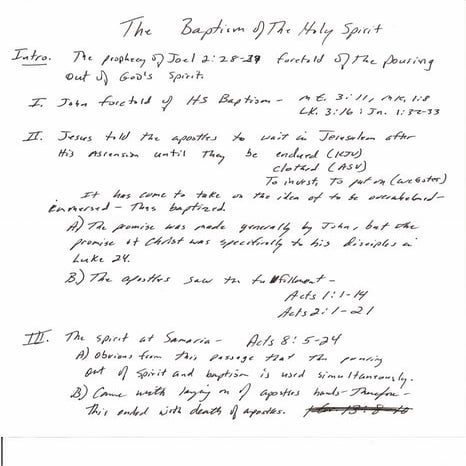 The Baptism of The Holy Spirit
Intro. The prophecy of Joel 2:28-29 foretold of the pouring
out of God's Spirit.
I. John foretold of HS Baptism - Mt. 3:11, Mk. 1:8
Lk. 3:16; Jn. 1:32-33
II. Jesus told the apostles to wait in Jerusalem after
His Ascension until They be endued (KJV)
clothed (ASV)
To invest, To put on (Webster)
It has come to take on the idea of to be overwhelmed -
immersed - Thus baptized.
A) The promise was made generally by John, but the
promise of Christ was specifically to his disciples in
Luke 24.
B) The apostles saw the fulfillment -
Acts 1:1-14
Acts 2:1-21
III. The spirit at Samaria - Acts 8:5-24
A) Obvious from this passage that the pouring
out of Spirit and baptism is used simultaneously.
B) Came with laying on of apostles hands - Therefore -
This ended with death of apostles.